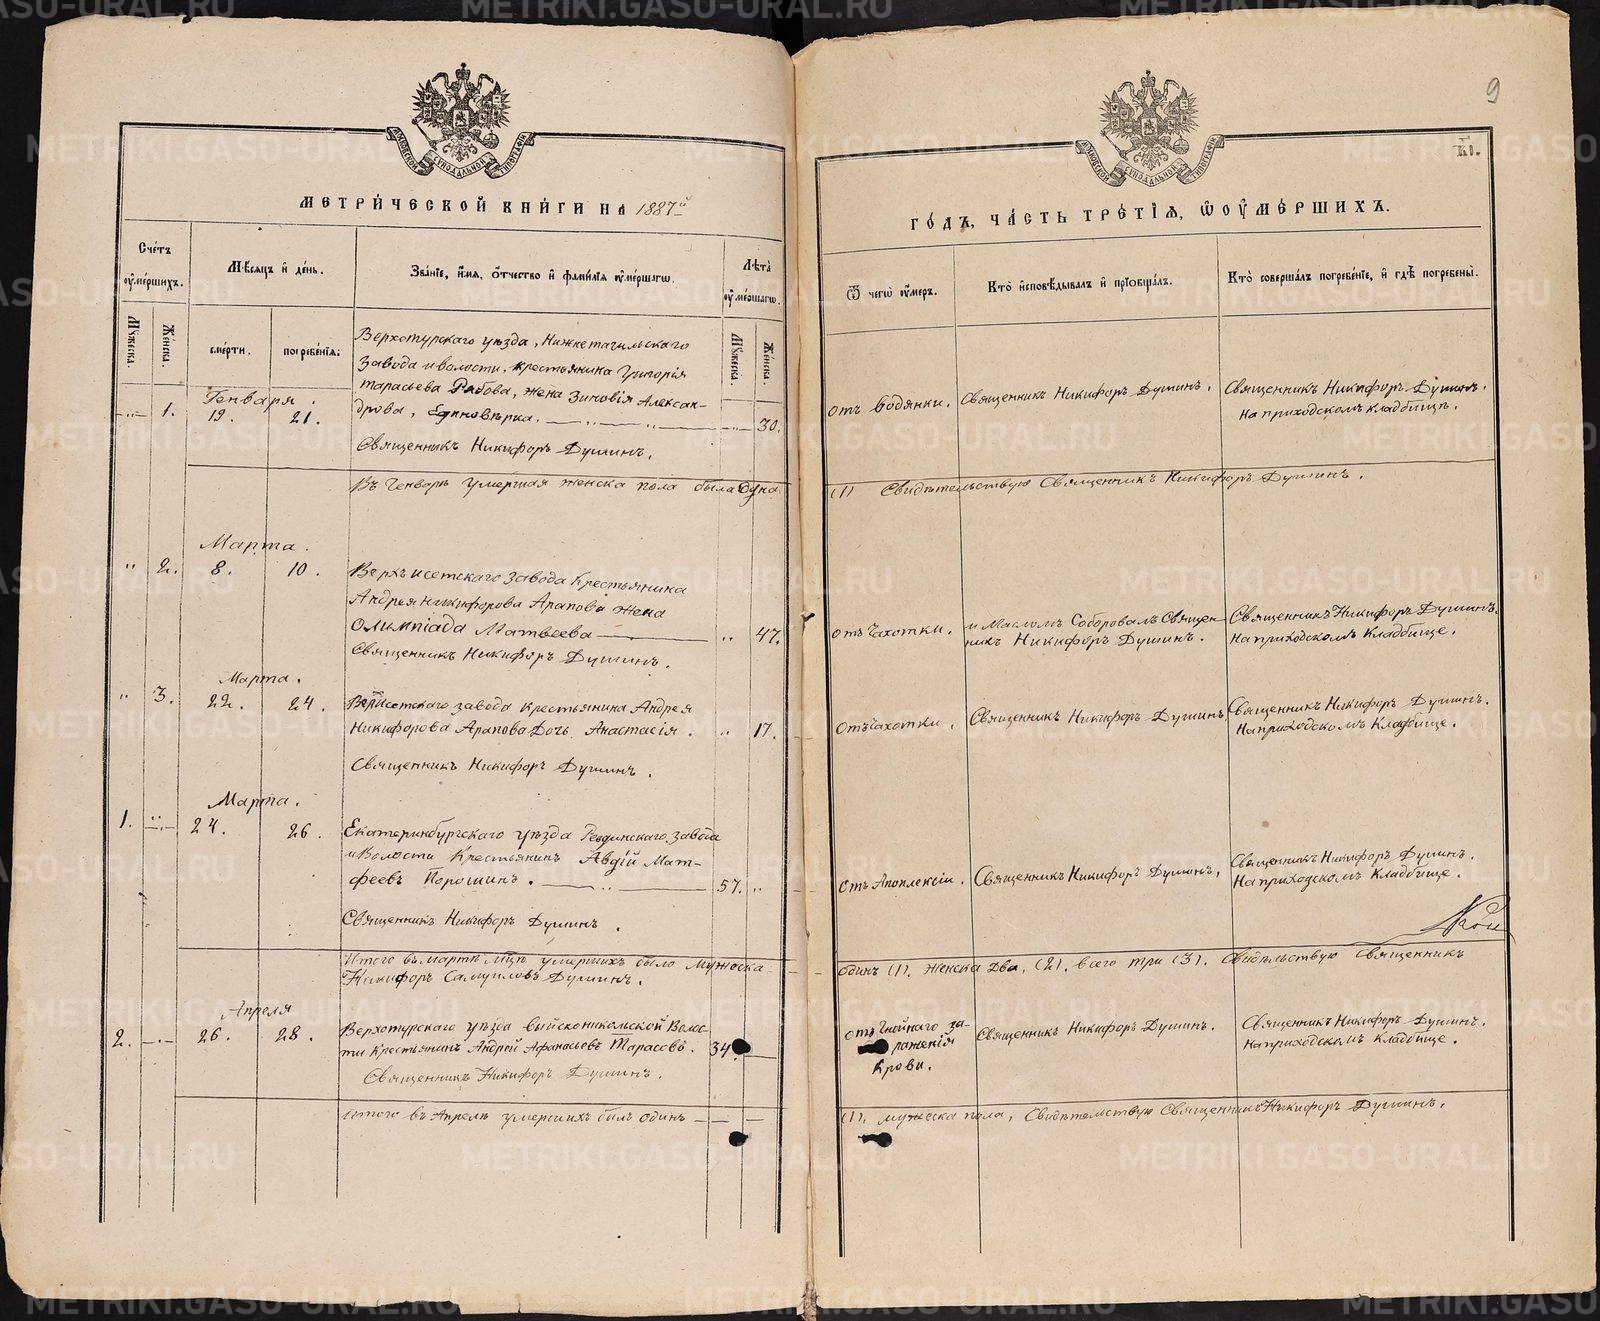 9
МЕТРИЧЕСКОЙ КНИГИ НА 1887й
ГОДЪ, ЧАСТЬ ТРЕТІЯ, Ѡ ОУМЕРШИХЪ.
Счетъ оумершихъ.
Мѣсяцъ и день.
Званіе, имя, отчество и фамилія оумершагѡ.
Лѣта оумершагѡ.
Ѿ чегѡ оумеръ.
Кто исповѣдывалъ и пріобщалъ.
Кто совершалъ погребеніе, и гдѣ погребены.
Мужеска.
Женска.
смерти.
погребенія:
Мужеска.
Женска.
Генваря.
1. 19. 21.
Верхотурскаго уѣзда, Нижнетагильскаго
Завода и волости, крестьянина Григорія
Тарасьева Рябова, жена Зиновія Алексан-
дрова, Единовѣрка. 30.
Священникъ Никифоръ Душинъ.
отъ водянки.
Священникъ Никифоръ Душинъ.
Священникъ Никифоръ Душинъ.
на приходскомъ кладбищѣ.
Въ Генварѣ умершая женска пола была одна
(1) Свидѣтельствую Священникъ Никифоръ Душинъ.
Марта.
" 2. 8. 10.
Верхъ исетскаго завода Крестьянина
Андрея Никифорова Арапова жена
Олимпіада Матвеева " 47.
Священникъ Никифоръ Душинъ.
отъ Чахотки.
и Масломъ Соборовалъ Священ-
никъ Никифоръ Душинъ.
Священникъ Никифоръ Душинъ.
на приходскомъ Кладбище.
Марта.
" 3. 22. 24.
Верхисетскаго завода крестьянина Андрея
Никифорова Арапова Дочь Анастасія. " 17.
Священникъ Никифоръ Душинъ.
отъ Чахотки.
Священникъ Никифоръ Душинъ
Священникъ Никифоръ Душинъ.
На приходскомъ Кладбище.
Марта.
1. " 24. 26.
Екатеринбургскаго уѣзда Ревдинскаго завода
и Волости Крестьянинъ Авдій Мат-
феевъ Порошинъ. 57. "
Священникъ Никифоръ Душинъ.
отъ Апоплексіи.
Священникъ Никифоръ Душинъ,
Священникъ Никифоръ Душинъ.
На приходскомъ Кладбище.
Итого въ мартѣ мцѣ умершихъ было мужеска
одинъ (1). женска два, (2). всего три (3). Свидѣтельствую Священникъ
Никифоръ Самуиловъ Душинъ.
Апреля
2. 26. 28.
Верхотурскаго уѣзда выйсконикольской Волос-
ти крестьянинъ Андрей Афанасьевъ Тарасовъ. 34.
Священникъ Никифоръ Душинъ.
отъ Гнойнаго за-
раженія
Крови.
Священникъ Никифоръ Душинъ.
Священникъ Никифоръ Душинъ.
на приходскомъ кладбище.
Итого въ Апрелѣ умершихъ былъ одинъ
(1). мужеска пола, Свидѣтельствую Священникъ Никифоръ Душинъ.
METRIKI.GASO-URAL.RU